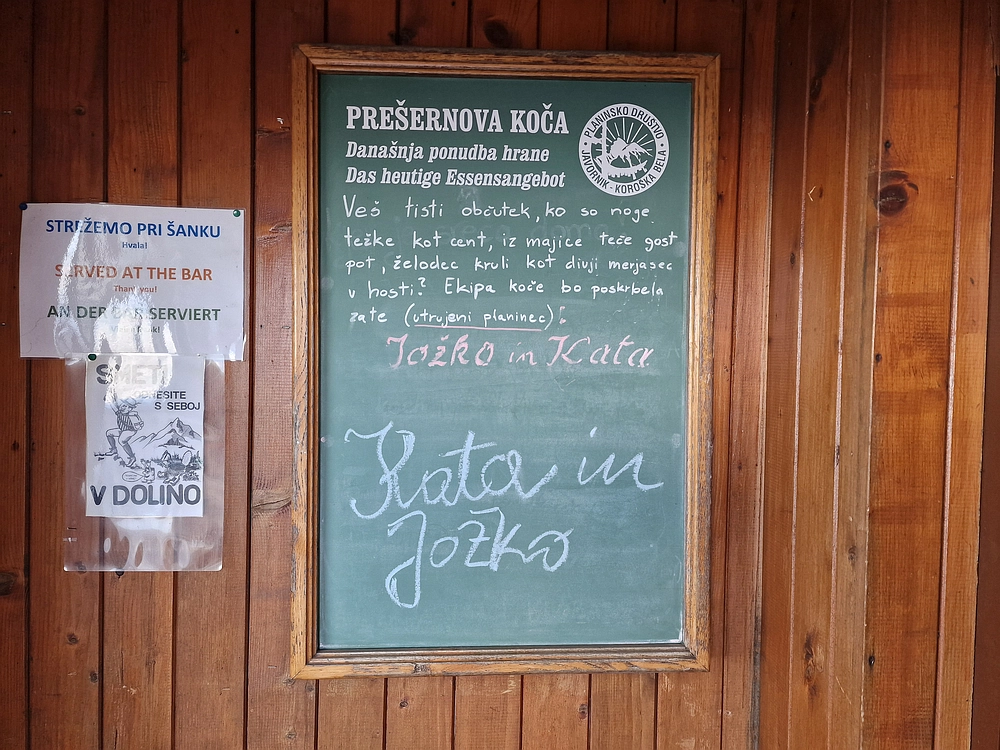 PREŠERNOVA KOČA
Današnja ponudba hrane
Das heutige Essensangebot
PLANINSKO DRUŠTVO
JAVORNIK - KOROŠKA BELA
Veš tisti občutek, ko so noge
težke kot cent, iz majice teče gost
pot, želodec kruli kot divji merjasec
v hosti? Ekipa koče bo poskrbela
zate (utrujeni planinec)!
Jožko in Kata
Kata in
Jožko
STREŽEMO PRI ŠANKU
Hvala!
SERVED AT THE BAR
Thank you!
AN DER BAR SERVIERT
SMETI
ODNESITE
S SEBOJ
V DOLINO